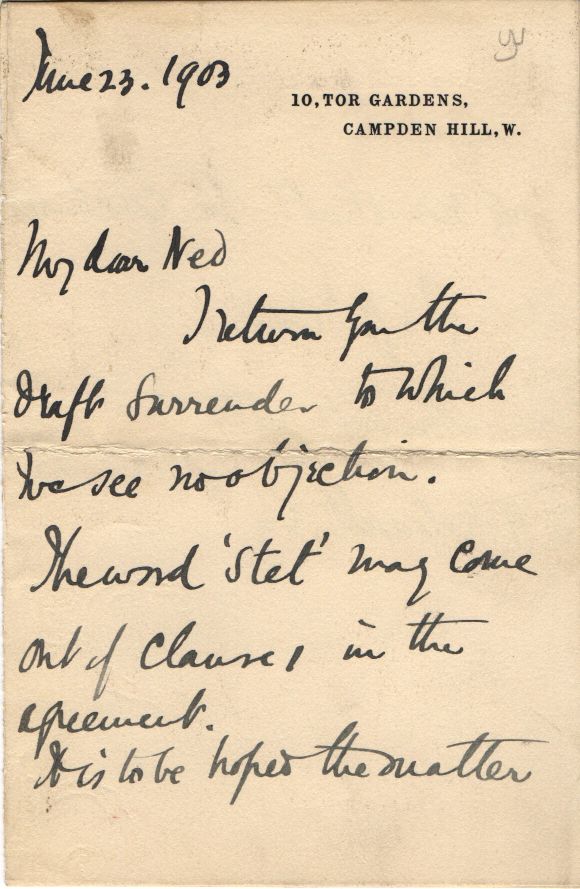 June 23. 1903
10, TOR GARDENS,
CAMPDEN HILL, W.
My dear Ned
I return you the
draft Surrender to which
we see no objection.
The word 'Stet' may come
out of Clause 1 in the
agreement.
It is to be hoped the matter